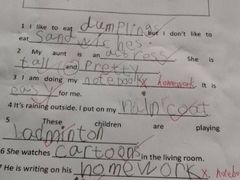 1 I like to eat dumplings But I don't like to
eat Sandwiches.
2 My aunt is an actress She is
tall and pretty
3 I am doing my notebook x homework It is
easy for me.
4 It's raining outside. I put on my raincoat
5 These children are playing
badminton
6 She watches cartoons in the living room.
7 He is writing on his homework x